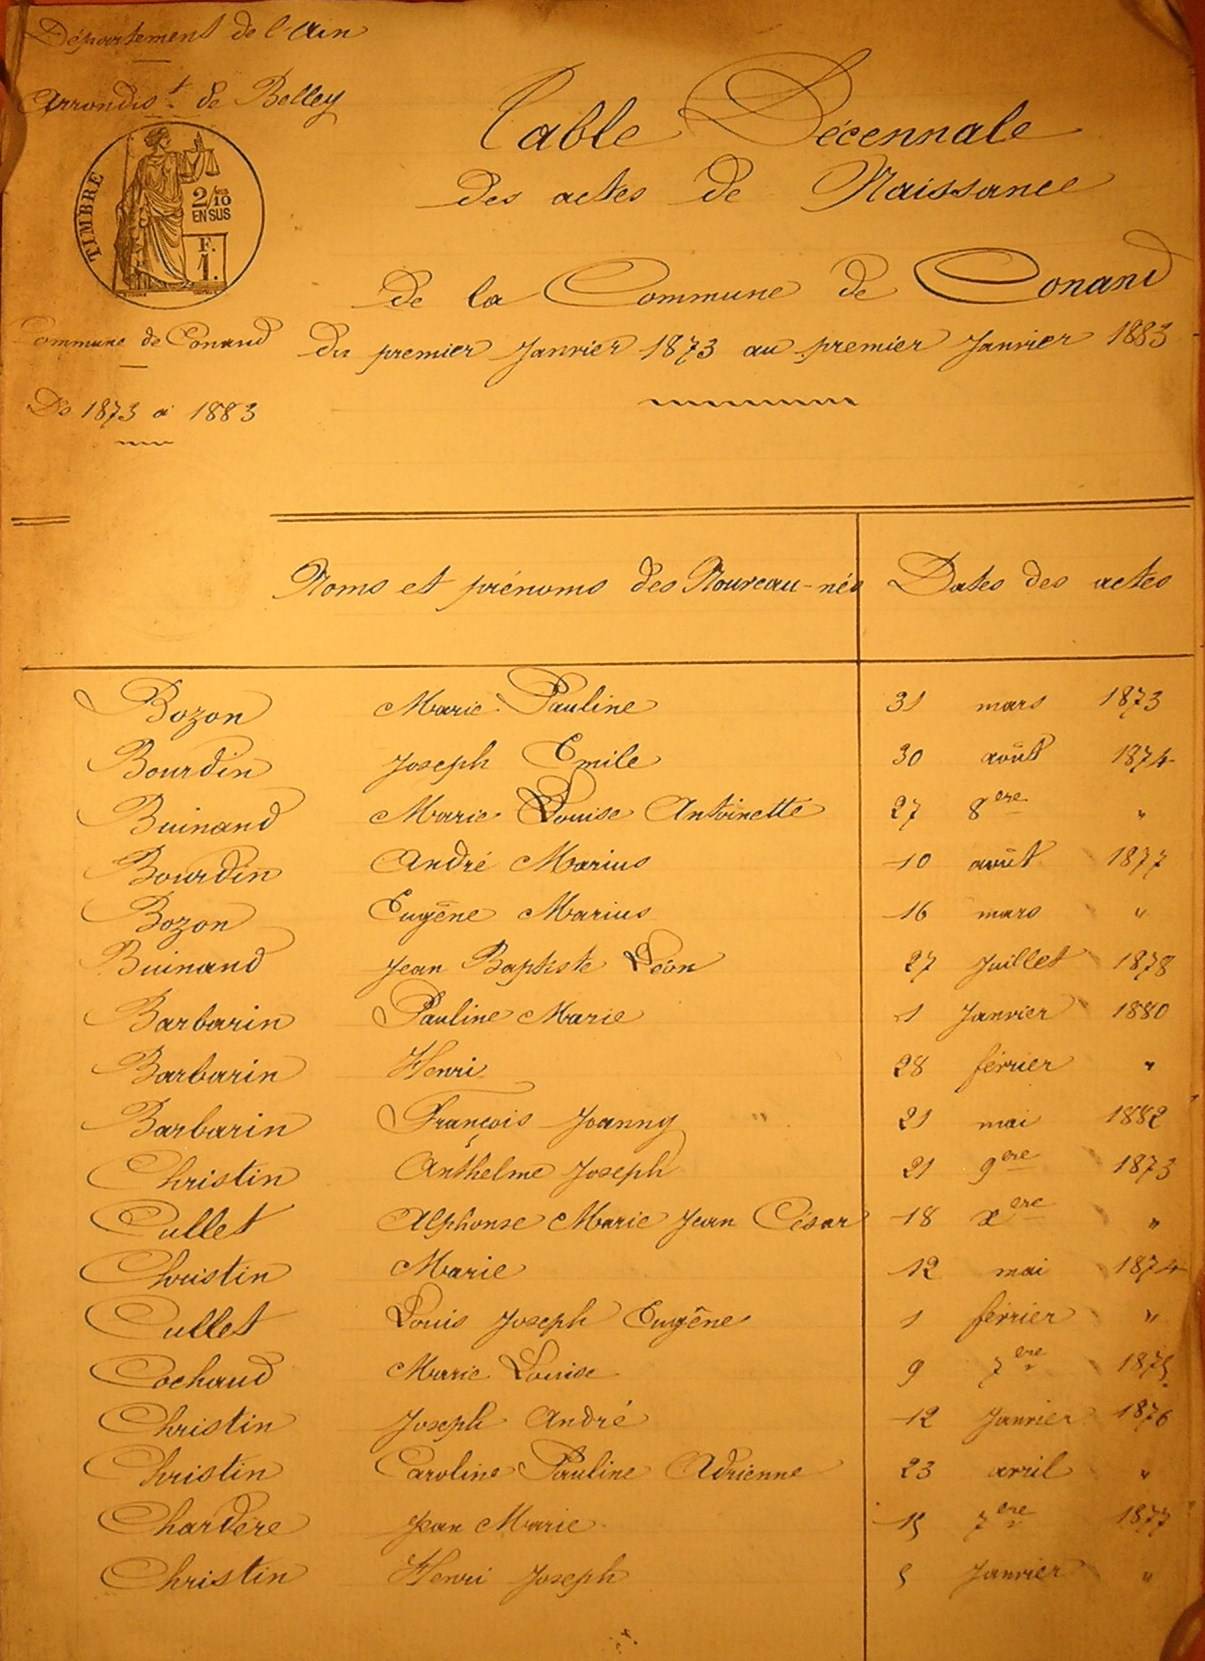 Département de l'Ain
Arrondis.t de Belley
TIMBRE
2/10 EN SUS
F. 1.
Commune de Conand
De 1873 à 1883
Table Décennale
des actes de Naissance
de la Commune de Conand
du premier Janvier 1873 au premier Janvier 1883
Noms et prénoms des Nouveau-nés Dates des actes
Bozon Marie Pauline 31 mars 1873
Bourdin Joseph Emile 30 août 1874
Buinand Marie Louise Antoinette 27 8ere "
Bourdin André Marius 10 août 1877
Bozon Eugène Marius 16 mars "
Buinand Jean Baptiste Léon 27 Juillet 1878
Barbarin Pauline Marie 1 Janvier 1880
Barbarin Henri 28 février "
Barbarin François Joanny " 21 mai 1882
Christin Anthelme Joseph 21 9ere 1873
Cullet Alphonse Marie Jean César 18 xere "
Christin Marie 12 mai 1874
Cullet Louis Joseph Eugène 1 février "
Cochaud Marie Louise 9 7ere 1875
Christin Joseph André 12 Janvier 1876
Christin Caroline Pauline Adrienne 23 avril "
Chardère Jean Marie 15 7ere 1877
Christin Henri Joseph 5 Janvier "